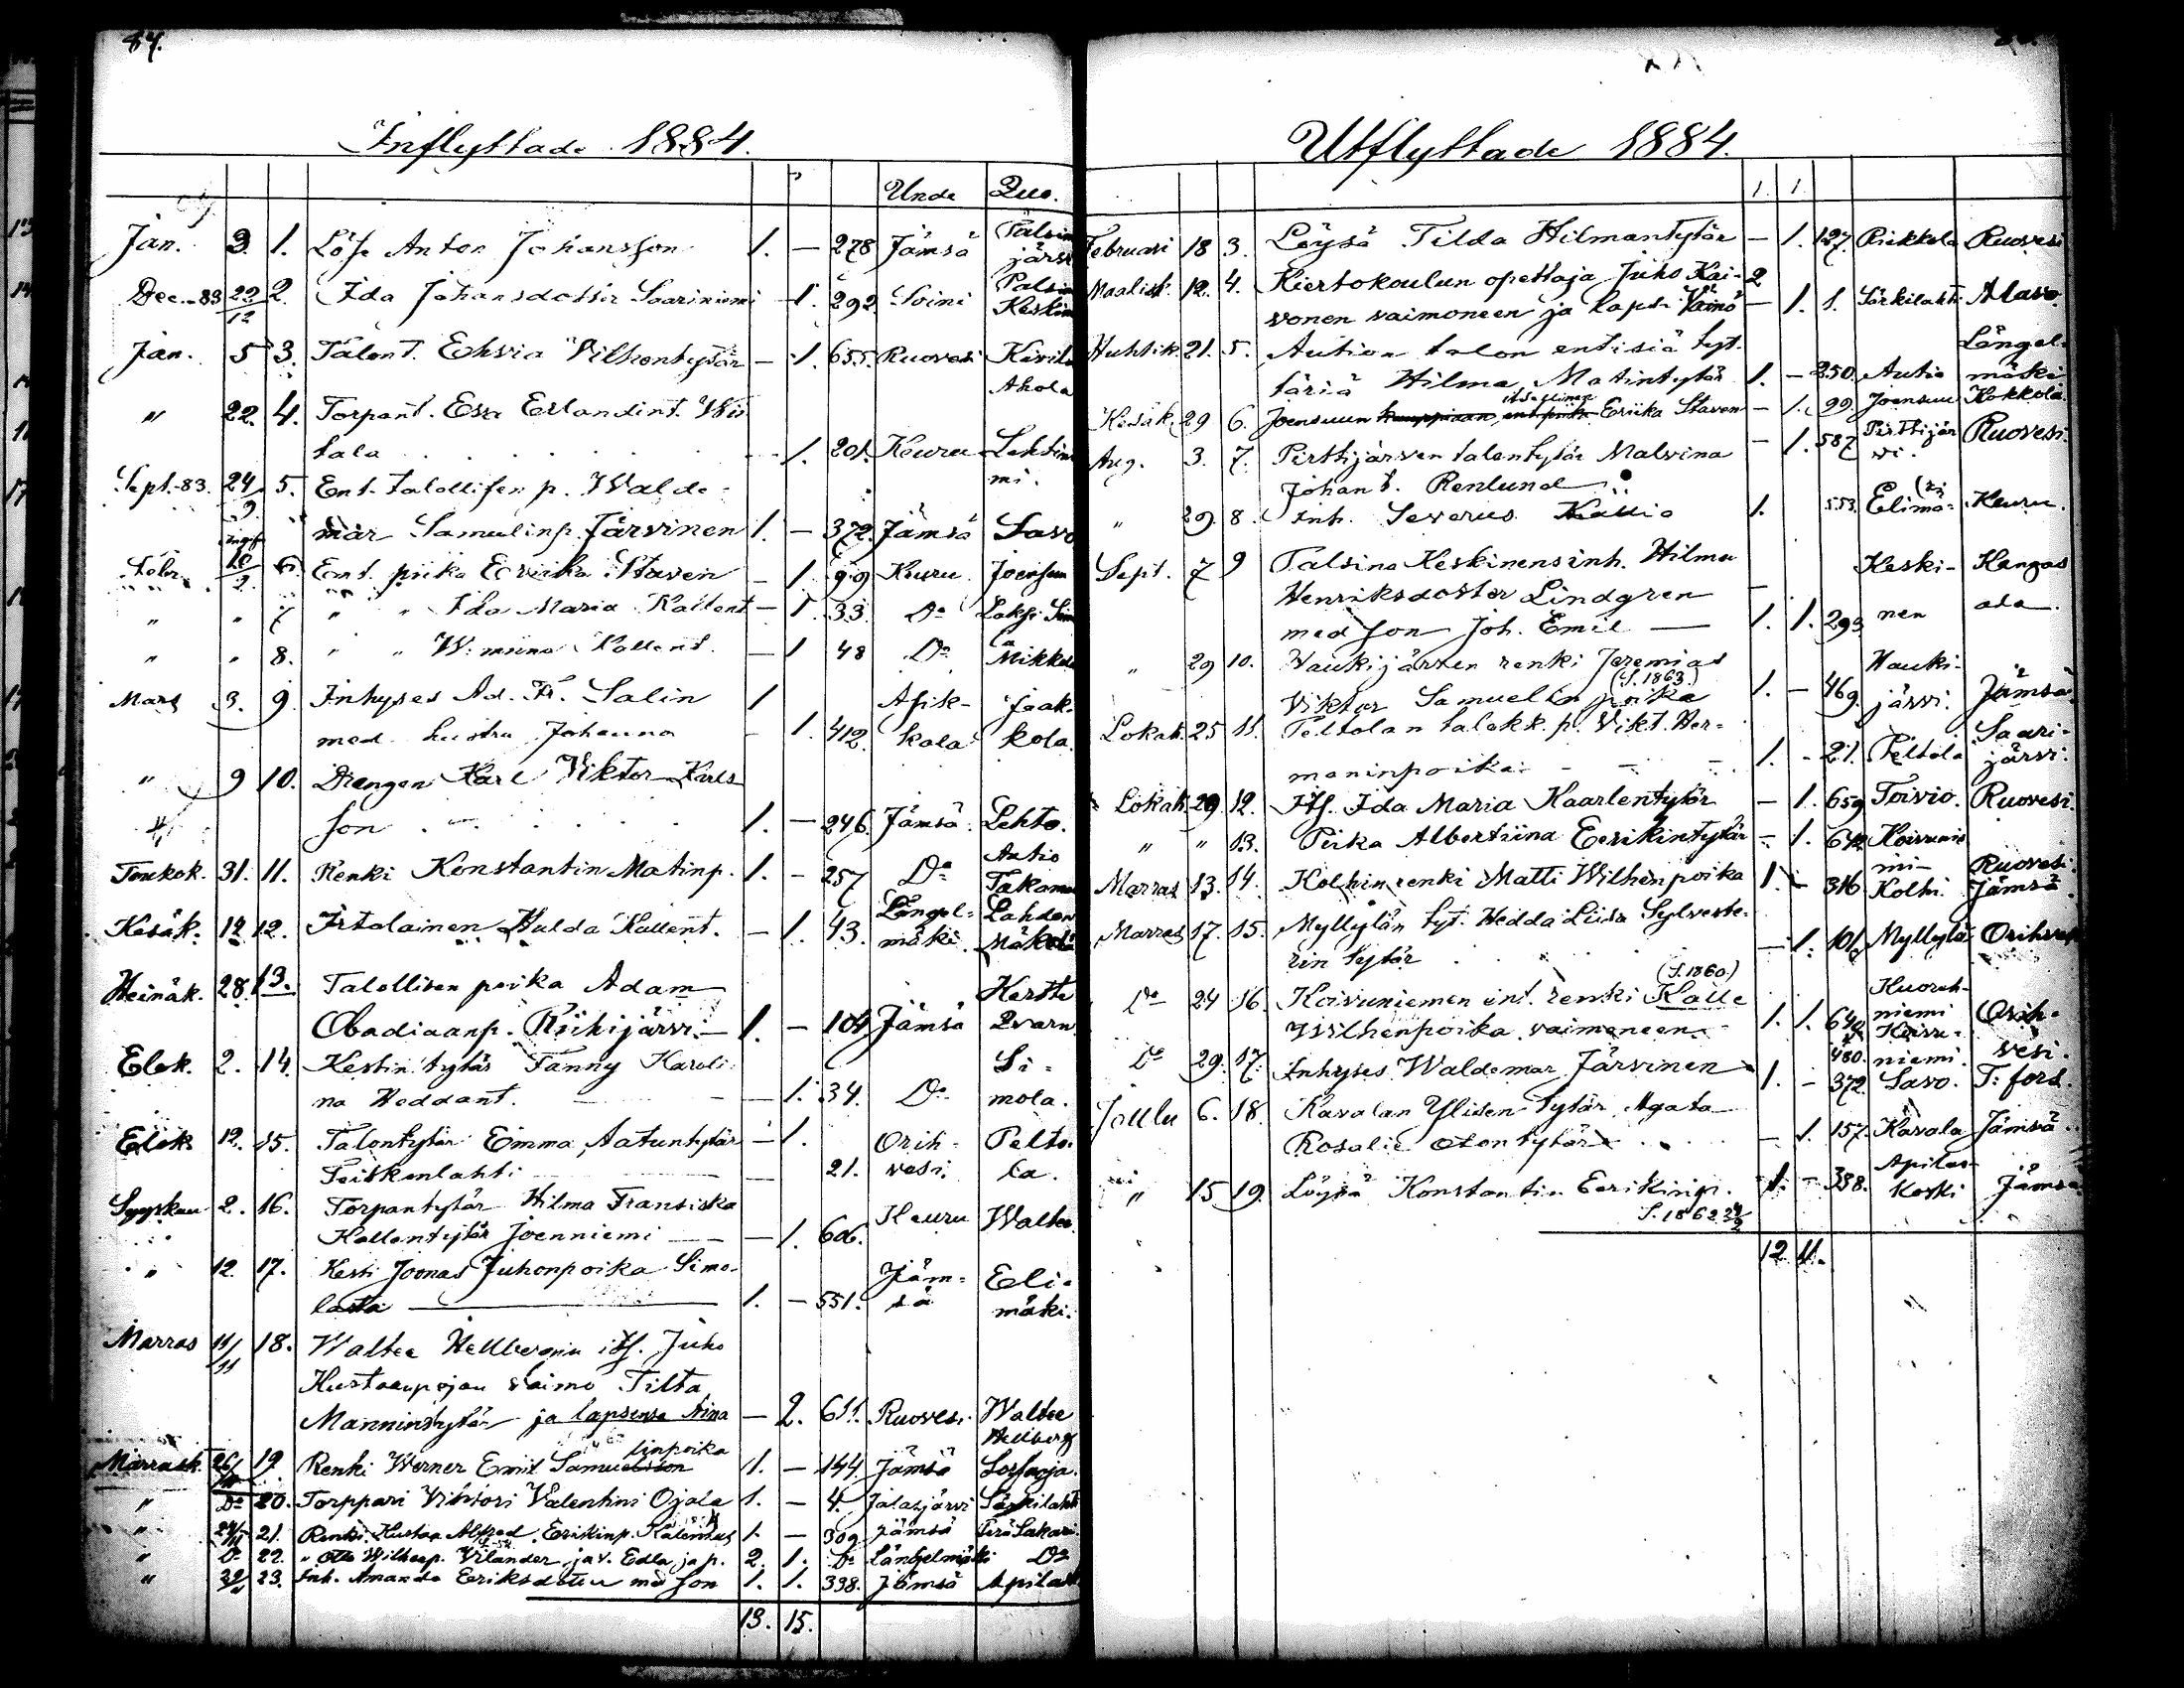 84.
Inflyttade 1884.
Unde Quo.
Jan. 3. 1. Löfs Anton Johansson 1. — 278 Jämsä Talsin
järvi
Dec.-83 22/12 2. Ida Johansdotter Saariniemi - 1. 292 Soini Palsin
Keskin
Jan. 5 3. Talont. Ehvia Vilhontytär — 1. 655. Ruovesi Kivila
Ahola
" 22. 4. Torpant. Eva Erlandint. Wii
tala - 1. 201. Keuru Lehtini
mi.
Sept.-83. 24/9 5. Ent. talollisen p. Walde-
mar Samulinp. Järvinen 1. — 372. Jämsä Savo
Febr. 10/2 6. Ent. piika Eerika Staven — 1. 99 Keuru Joensuu
" " 7 " " Ida Maria Kallent. — 1. 33. Do
" " 8. " " W:miina Kallent. — 1 48 Do Mikkola
Mars 3. 9. Inhyses Ad. Fr. Salin 1 Asik- Jaak-
med hustru Johanna - 1. 412. kala kola.
" 9 10. Drengen Karl Viktor Karls-
son 1. — 246. Jämsä. Lehto.
Autio
Toukok. 31. 11. Renki Konstantin Matinp. 1. - 257 Do Takamaa
Kesäk. 12 12. Itolainen Hulda Kallent. — 1. 43. Längel- Lahden
mäki. Mäkelä
Heinäk. 28. 13. Talollisen poika Adam Kertte
Obadiaanp. Riihijärvi. — 1. — 104 Jämsä Qvarn
Elok. 2. 14. Kestin tytär Fanny Karoli- Si-
na Heddant. — 1. 34. Do mola.
Elok. 12. 15. Talontytär Emma Aatuntytär — 1. Orih- Pelto-
Teiskonlahti 21. vesi. la.
Syyskuu 2. 16. Torpantytär Hilma Fransiska
Kallentytär Joenniemi — 1. 606. Keuru Waltee
" 12. 17. Kesti Joonas Juhonpoika Simo- Jäm- Eli-
lasta 1. — 551. sä mäki.
Marras 11/11 18. Waltee Hellbergin its. Juho
Kustaanpojan vaimo Tilta
Mannintytär ja lapsensa Aina — 2. 611. Ruovesi Waltee
Hellberg
linpoika
Marrask. 26/10 19 Renki Werner Emil Samuelsson 1. — 144. Jämsä
" Do 20. Torppari Vihtori Valentini Ojala 1. — 4. Jalasjärvi Särkilahti
" 24/11 21. Renki Kustaa Alfred Eerikinp. Kalenius 1 — 309 Jämsä Perä Sakari.
" Do 22. " Otto Wilhosp. Vilander ja v. Edla ja p. 2. 1. Do Längelmäki Do
" 23. Inh. Amanda Eeriksdotter med son 1. 1. 398. Jämsä Apilas
13. 15.
Utflyttade 1884.
1. 1.
Februari 18 3. Löysä Tilda Hilmantytär — 1. 127. Riekkola Ruovesi
Maalisk. 12. 4. Kiertokoulun opettaja Juho Kai- 2
vonen vaimoneen ja lapsi Väinö — 1. 1. Särkilahti Alavo.
Huhtik. 21. 5. Aution talon entisiä tyt- Längel-
täriä Hilma Matintytär 1. — 250. Autio mäki
Kesäk. 29 6. Joensuun itsellinen Eeriika Staven — 1. 99. Joensuu Kokkola.
Aug. 3. 7. Pirttijärven talontytär Malvina — 1. 587 Pirttijär Ruovesi.
vi.
Johant. Renlund
" 29. 8. Inh. Severus Kallio 1. 553. Elimä- (ki Keuru.
Sept. 7 9 Talsina Keskinens inh. Hilma Keski- Kangas
Henriksdotter Lindgren —
med son Joh. Emil — 1. 1. 293 nen ala.
" 29 10. Haukijärven renki Jeremias Hauki-
(S. 1863.)
Viktor Samuelin poika 1. — 469. järvi. Jämsä.
Lokak. 25 11. Peltolan talokk. p. Vikt. Her- Saari-
maninpoika. 1. - 21. Peltola järvi.
Lokak. 29. 12. Its. Ida Maria Kaarlentytär — 1. 659. Toivio. Ruovesi.
" " 13. Piika Albertiina Eerikintytär - 1. 642. Koivunie
mi- Ruovesi.
Marras 13. 14. Kolhin renki Matti Wilhenpoika 1. — 316 Kolhi. Jämsä.
Marras 17. 15. Myllylän tyt. Hedda Liisa Sylveste-
rin tytär — 1. 101. Myllylä Orihvesi
(S. 1860.)
Do 24 16. Koivuniemen ent. renki Kalle Kuoreh-
Wilhenpoika vaimoneen. 1. 1. 642. niemi Orih-
Koivu-
480. niemi vesi.
Do 29. 17. Inhyses Waldemar Järvinen 1. — 372. Savo. T:fors.
Joulu 6. 18. Kavalan Ylisen tytär Agata
Rosalie Otontytär — 1. 157. Kavala Jämsä.
" 15 19. Löysä Konstantin Eerikinp. 1. — 398. Apilas-
koski Jämsä.
S. 1862
12 11.